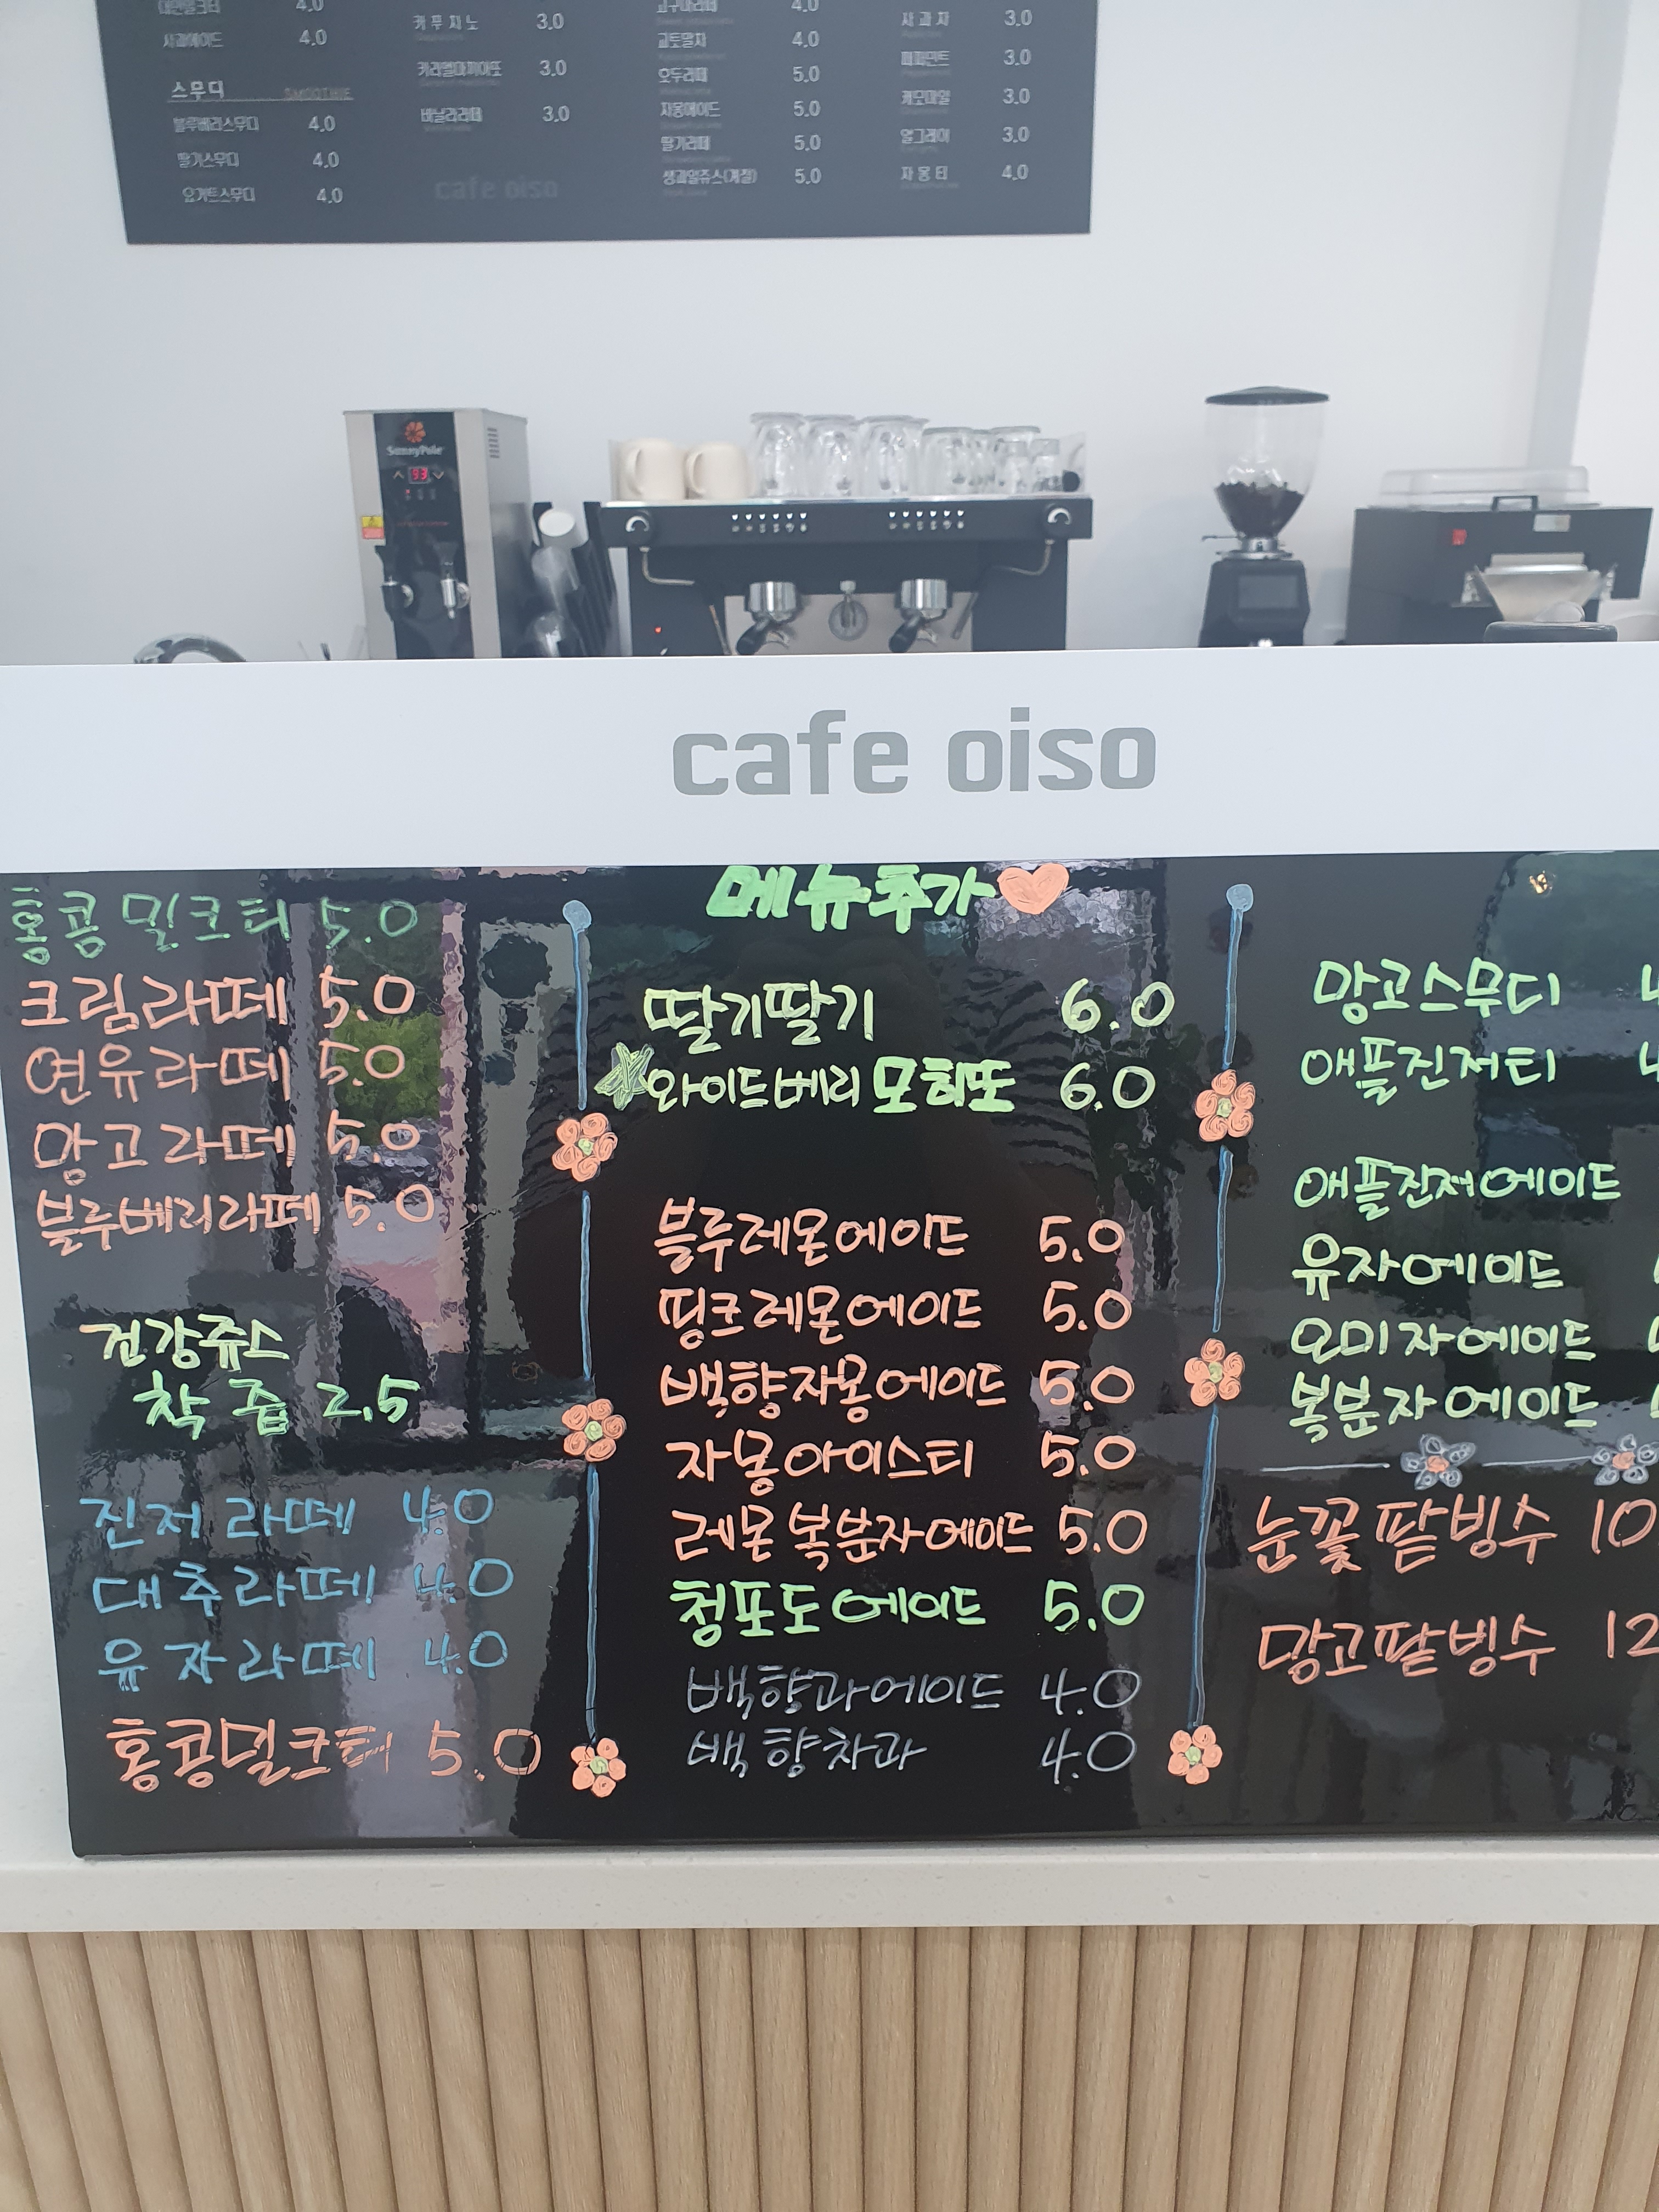 대만밀크티 4.0
사과에이드 4.0
스무디 SMOOTHIE
블루베리스무디 4.0
딸기스무디 4.0
요거트스무디 4.0
카푸치노 3.0
카라멜마끼아또 3.0
바닐라라떼 3.0
cafe oiso
고구마라떼 4.0
교토말차 4.0
오두라떼 5.0
자몽에이드 5.0
딸기라떼 5.0
생과일쥬스(계절) 5.0
사과차 3.0
페퍼민트 3.0
케모마일 3.0
얼그레이 3.0
자몽티 4.0
SunnyPole
93
cafe oiso
홍콩밀크티 5.0
크림라떼 5.0
연유라떼 5.0
망고라떼 5.0
블루베리라떼 5.0
건강쥬스
착즙 2.5
진저라떼 4.0
대추라떼 4.0
유자라떼 4.0
홍콩밀크티 5.0
메뉴추가
딸기딸기 6.0
와이드베리모히또 6.0
블루레몬에이드 5.0
핑크레몬에이드 5.0
백향자몽에이드 5.0
자몽아이스티 5.0
레몬복분자에이드 5.0
청포도에이드 5.0
백향과에이드 4.0
백향차과 4.0
망고스무디
애플진저티
애플진저에이드
유자에이드
오미자에이드
복분자에이드
눈꽃팥빙수 10
망고팥빙수 12